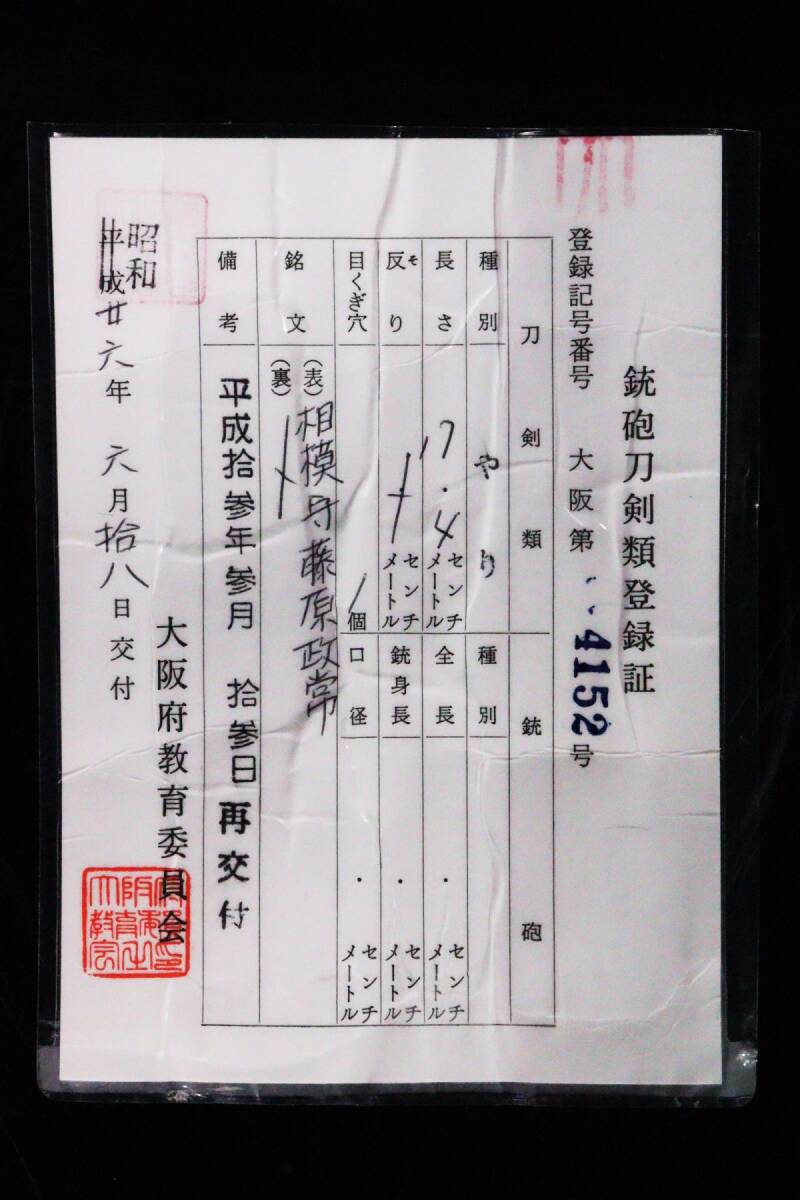 銃砲刀剣類登録証
登録記号番号 大阪第 4152 号
刀剣類 銃砲
種別 やり 種別
長さ 17.4 センチメートル 全長 ・ センチメートル
反り そ センチメートル 銃身長 ・ センチメートル
目くぎ穴 1個 口径 ・ センチメートル
銘文 (表) 相模守藤原政常
(裏)
備考 平成拾参年参月 拾参日再交付
昭和
平成廿六年 六月拾八日交付
大阪府教育委員会